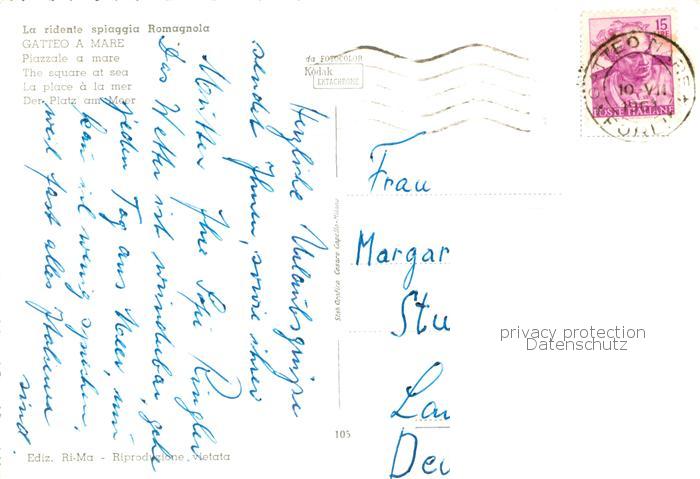 La ridente spiaggia Romagnola
GATTEO A MARE
Piazzale a mare
The square at sea
La place à la mer
Der Platz am Meer
da FOTOCOLOR
Kodak
EKTACHROME
15
LIRE
POSTE ITALIANE
GATTEO MARE
10. VII
1961
FORLI
Herzliche Urlaubsgrüße
sendet Ihnen, sowie ihrer
Mutter Ihre Sofi Ringler
Das Wetter ist wunderbar, gehe
jeden Tag ans Meer, nur
kann viel wenig sprechen,
weil fast alles Italiener
sind.
Frau
Margar
Stu
Lan
Deu
privacy protection
Datenschutz
Stab. Grafico Cesare Capello - Milano
105
Ediz. Ri-Ma - Riproduzione vietata